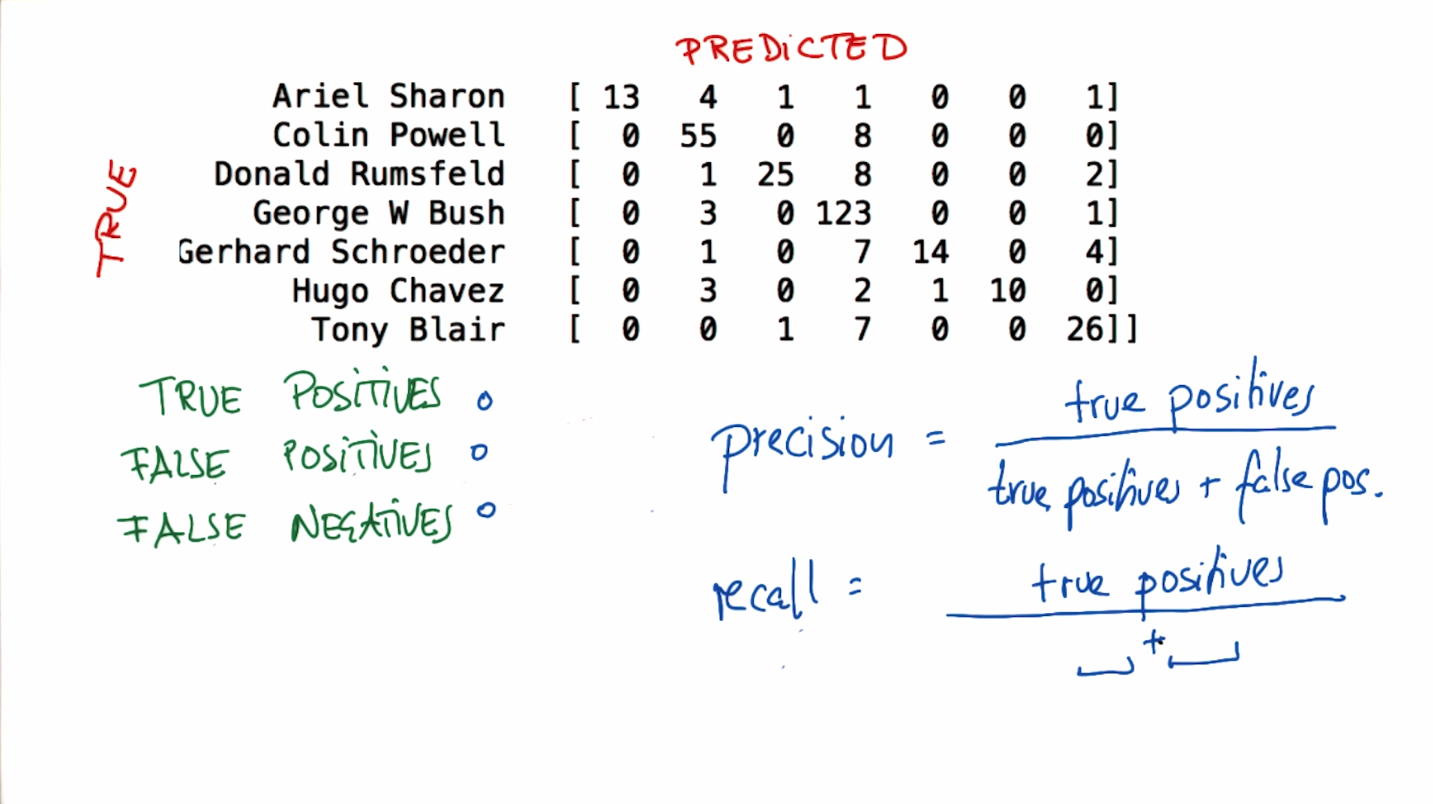 PREDiCTED
TRUE
Ariel Sharon [ 13 4 1 1 0 0 1]
Colin Powell [ 0 55 0 8 0 0 0]
Donald Rumsfeld [ 0 1 25 8 0 0 2]
George W Bush [ 0 3 0 123 0 0 1]
Gerhard Schroeder [ 0 1 0 7 14 0 4]
Hugo Chavez [ 0 3 0 2 1 10 0]
Tony Blair [ 0 0 1 7 0 0 26]]
TRUE POSiTiVES
FALSE POSiTiVES
FALSE NEGATiVES
precision = true positives
true positives + false pos.
recall = true positives
+